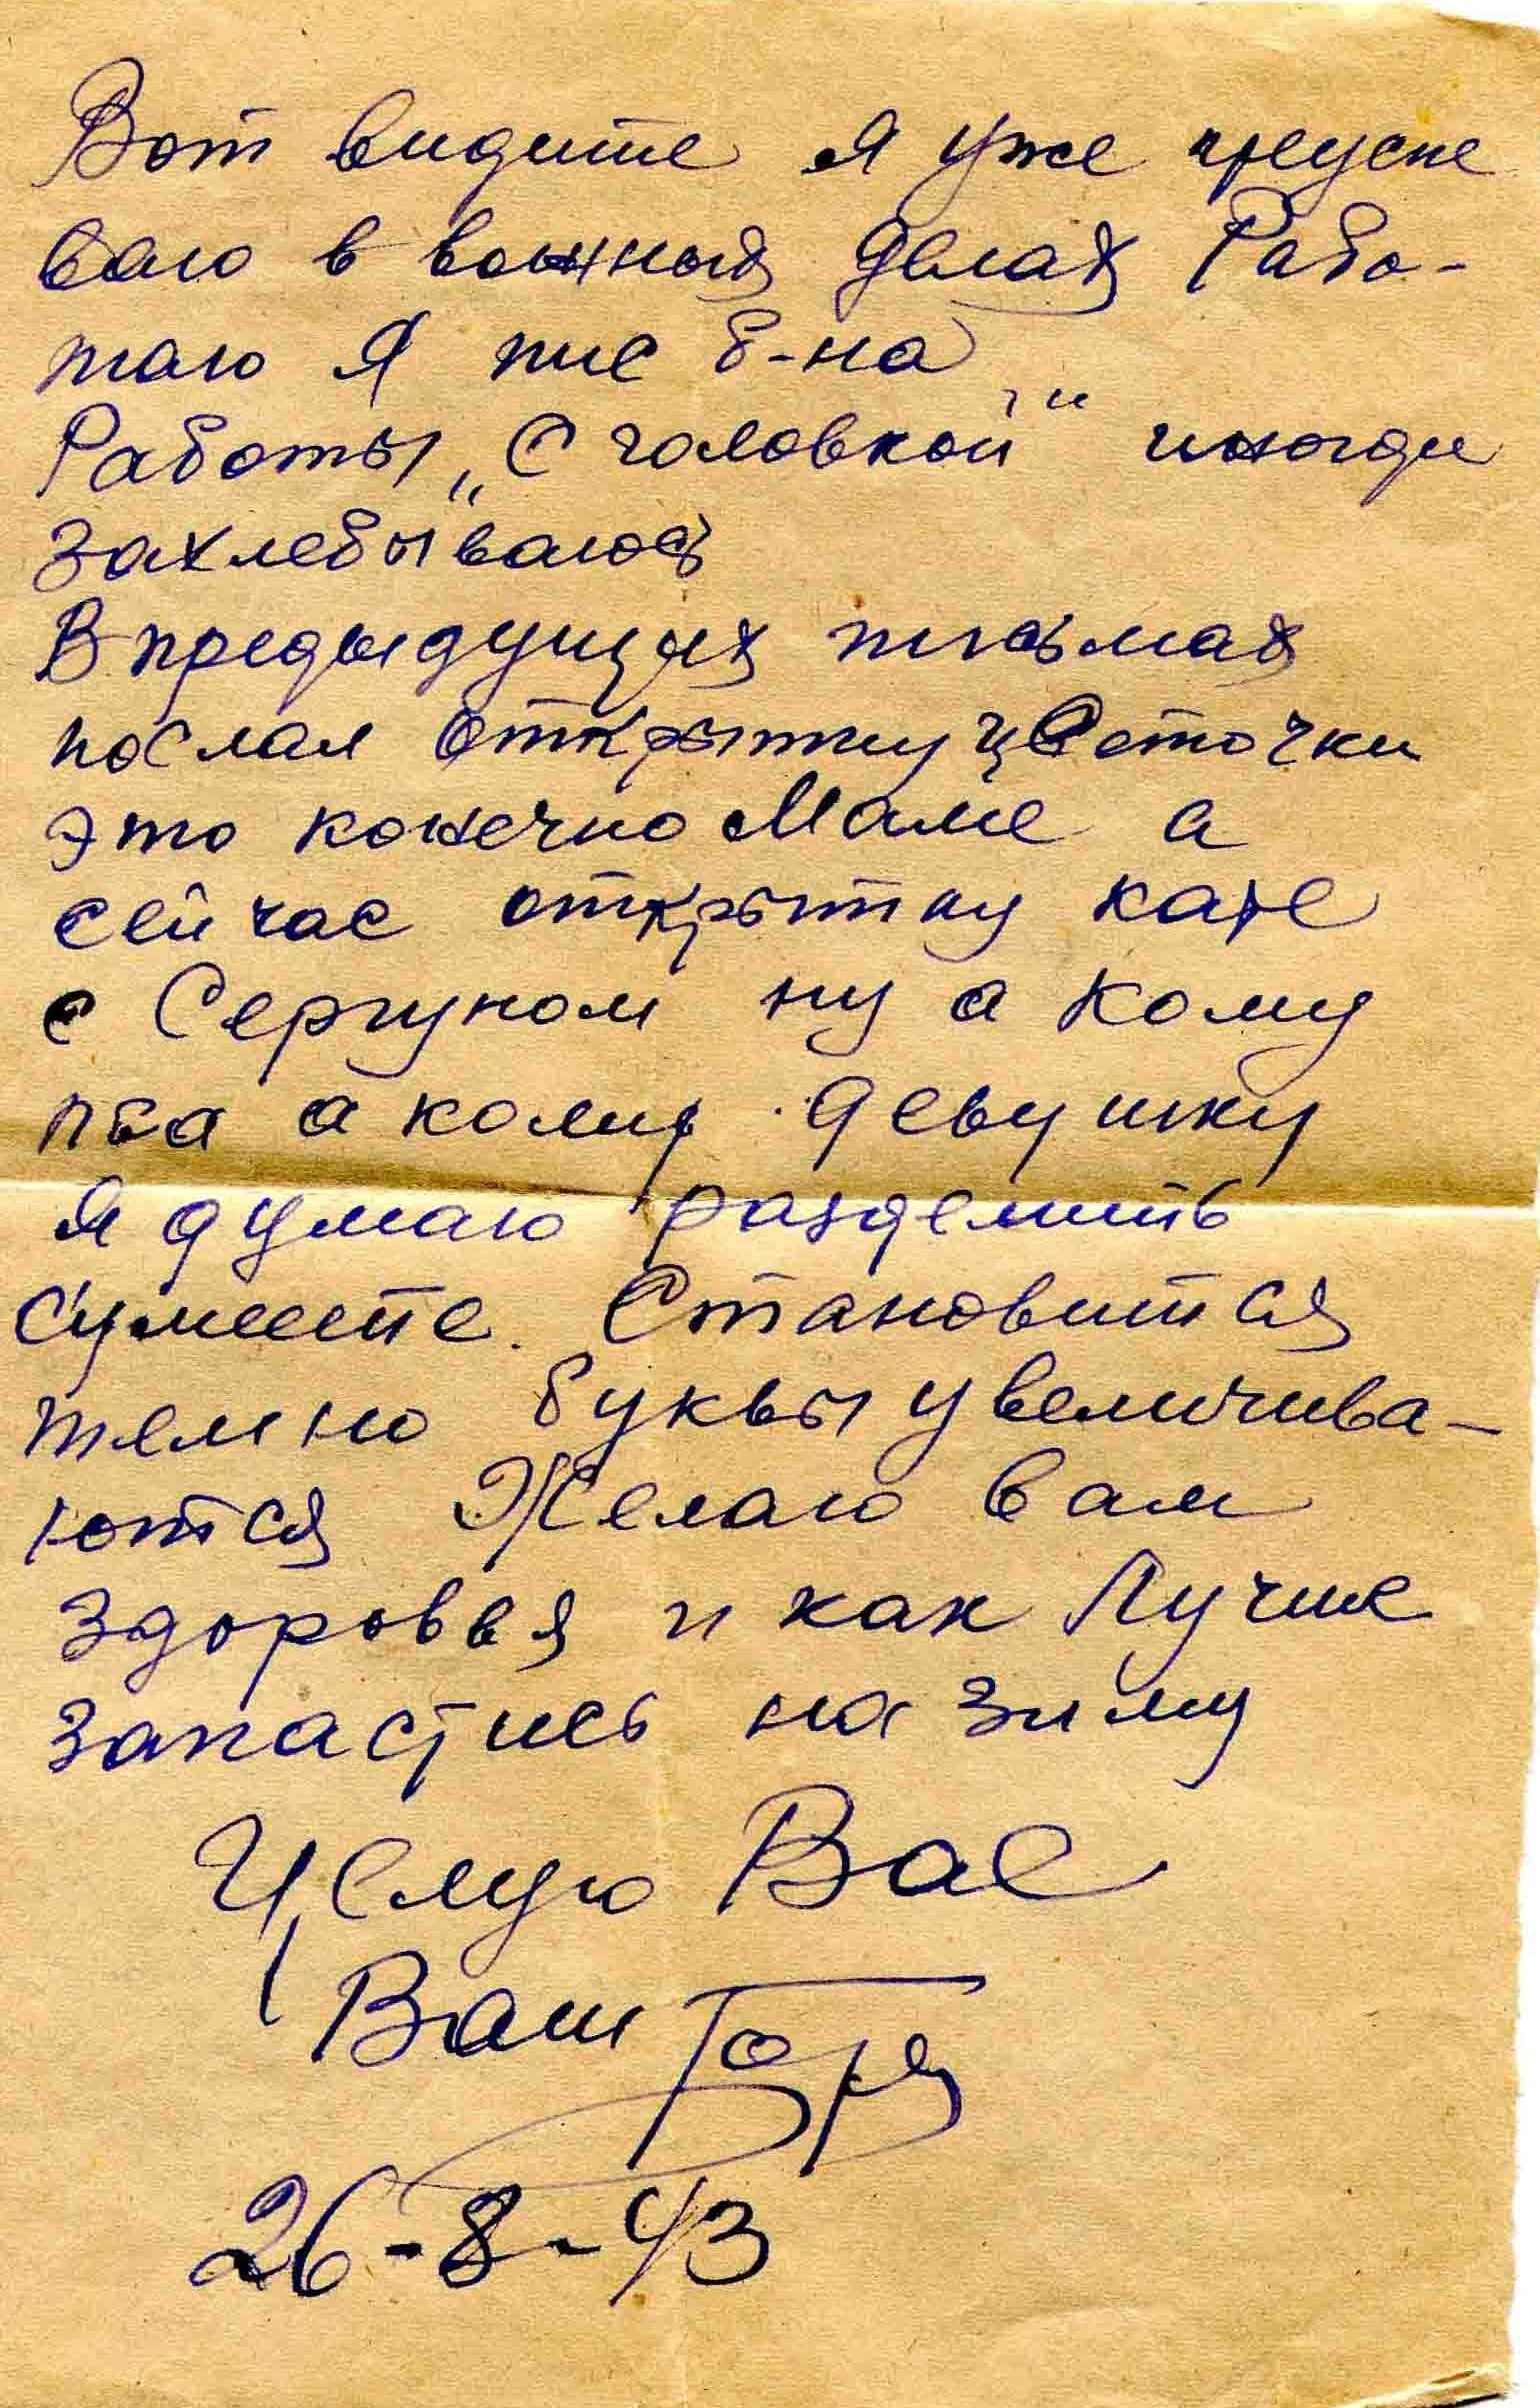 Вот видите я уже преуспе
ваю в военных делах Рабо-
таю я пис б-на
Работы „С головкой“ иногда
захлебываюсь
В предыдущих письмах
послал открытку цветочки
это конечно Маме а
сейчас открытку Кате
с Сергуном ну а кому
пса а кому девушку
Я думаю разделить
сумеете. Становится
темно буквы увеличива-
ются Желаю вам
здоровья и как лучше
запастись на зиму
Целую Вас
Ваш
26-8-43